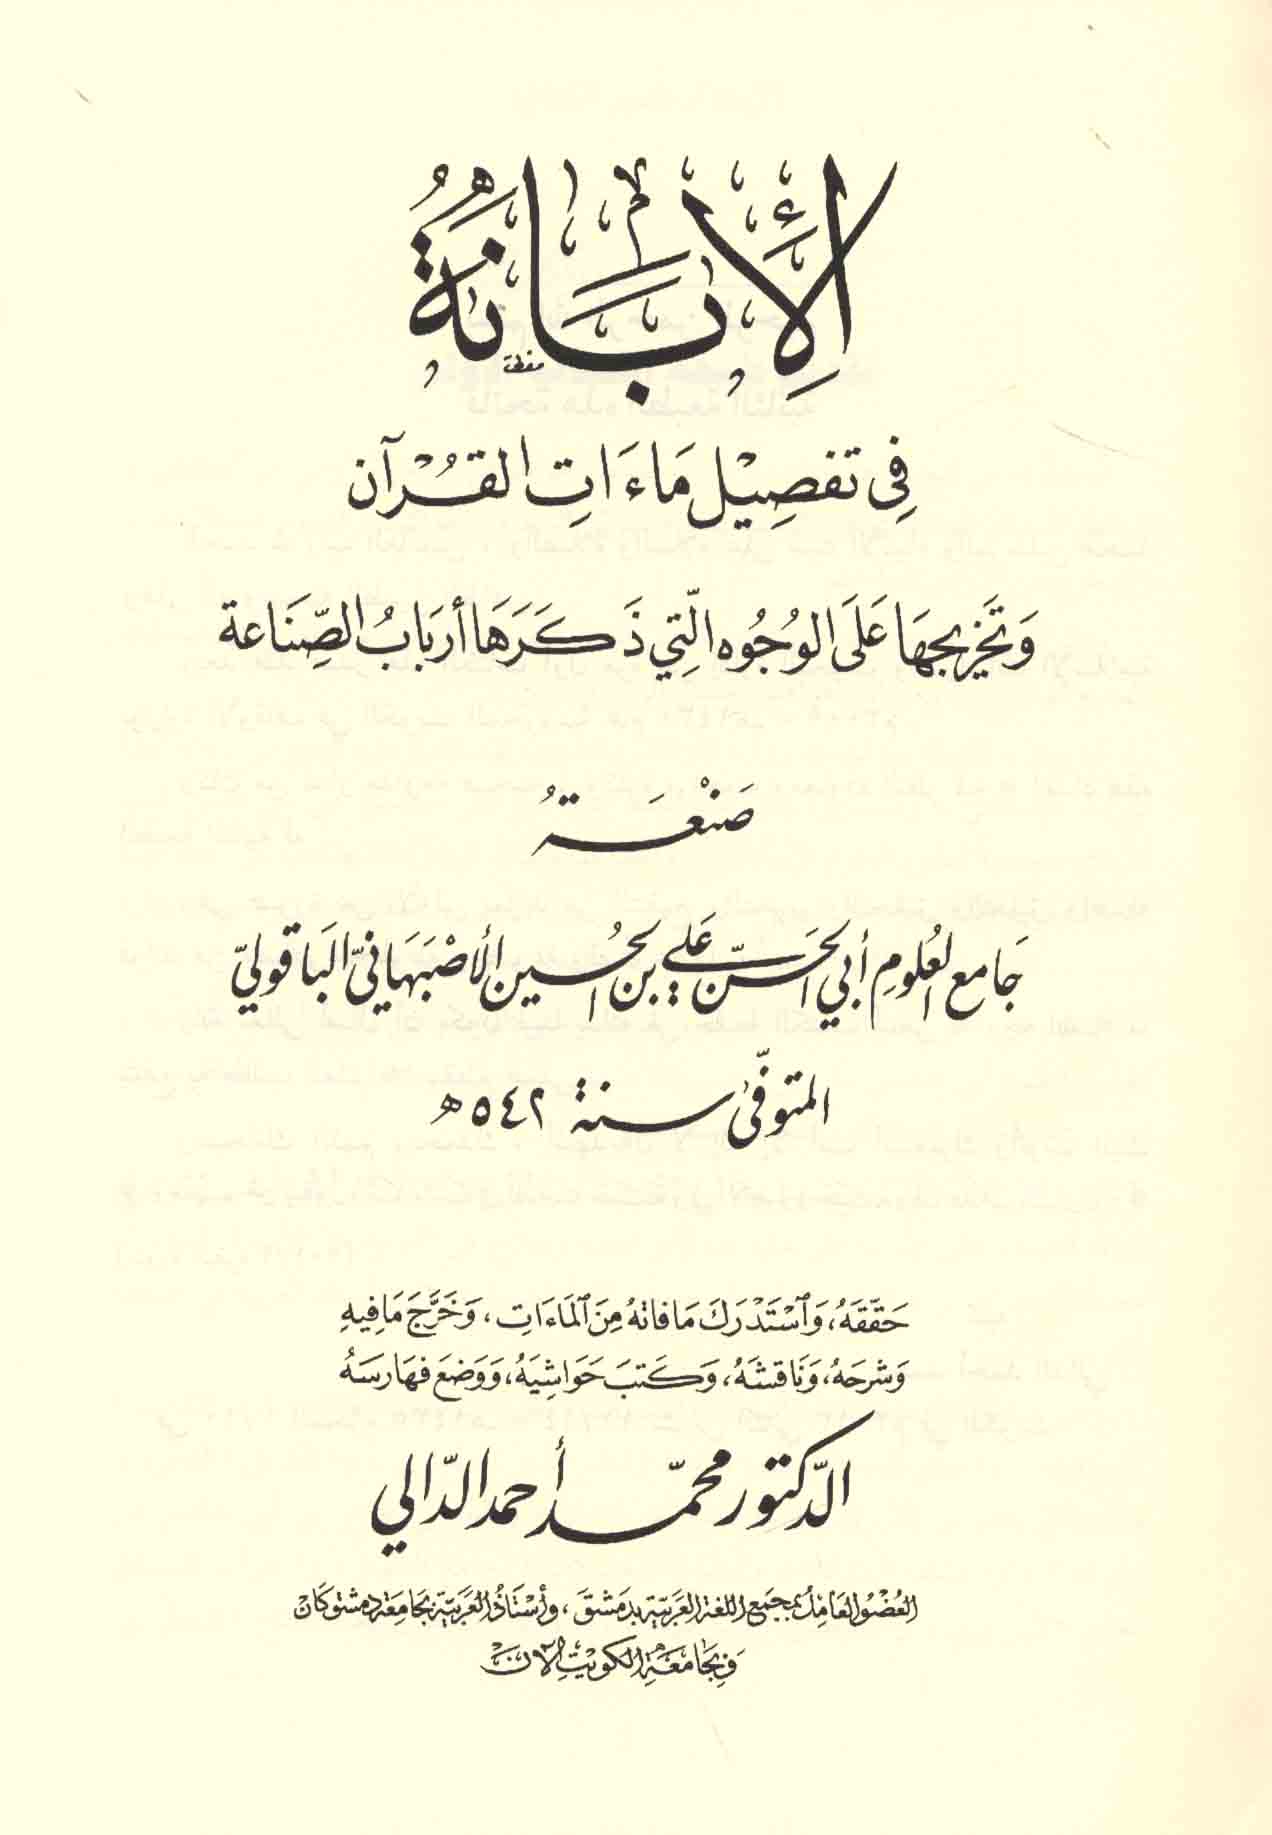 الإِبَانَةُ
فِي تفصِيْل مَاءَاتِ القُرْآن
وَتَخريجهَا عَلَى الوُجُوه الّتِي ذَكَرَهَا أربَابُ الصِّنَاعة
صَنْعَةُ
جَامع العُلومِ أبي الحَسَن عَلي بن الحُسين الأصْبَهَانيّ البَاقوليّ
المتوفّى سنة ٥٤٢ ﻫ
حَقَّقَهُ، وَٱسْتَدْرَكَ مَا فاتهُ مِنَ ٱلمَاءَاتِ، وَخَرَّجَ مَا فِيهِ
وَشرحَهُ، وَنَاقشَهُ، وَكَتبَ حَوَاشِيَهُ، وَوَضعَ فهَارسَهُ
الدّكتور محمّد أحمد الدّالي
العُضْو العَامِلُ بمجمَع اللغة العَربيّة بدمَشقَ، وأسْتَاذُ العَربيّة بجَامعَة دمَشق كَانَ
وَبجَامعَةِ الكويْتِ الآنَ